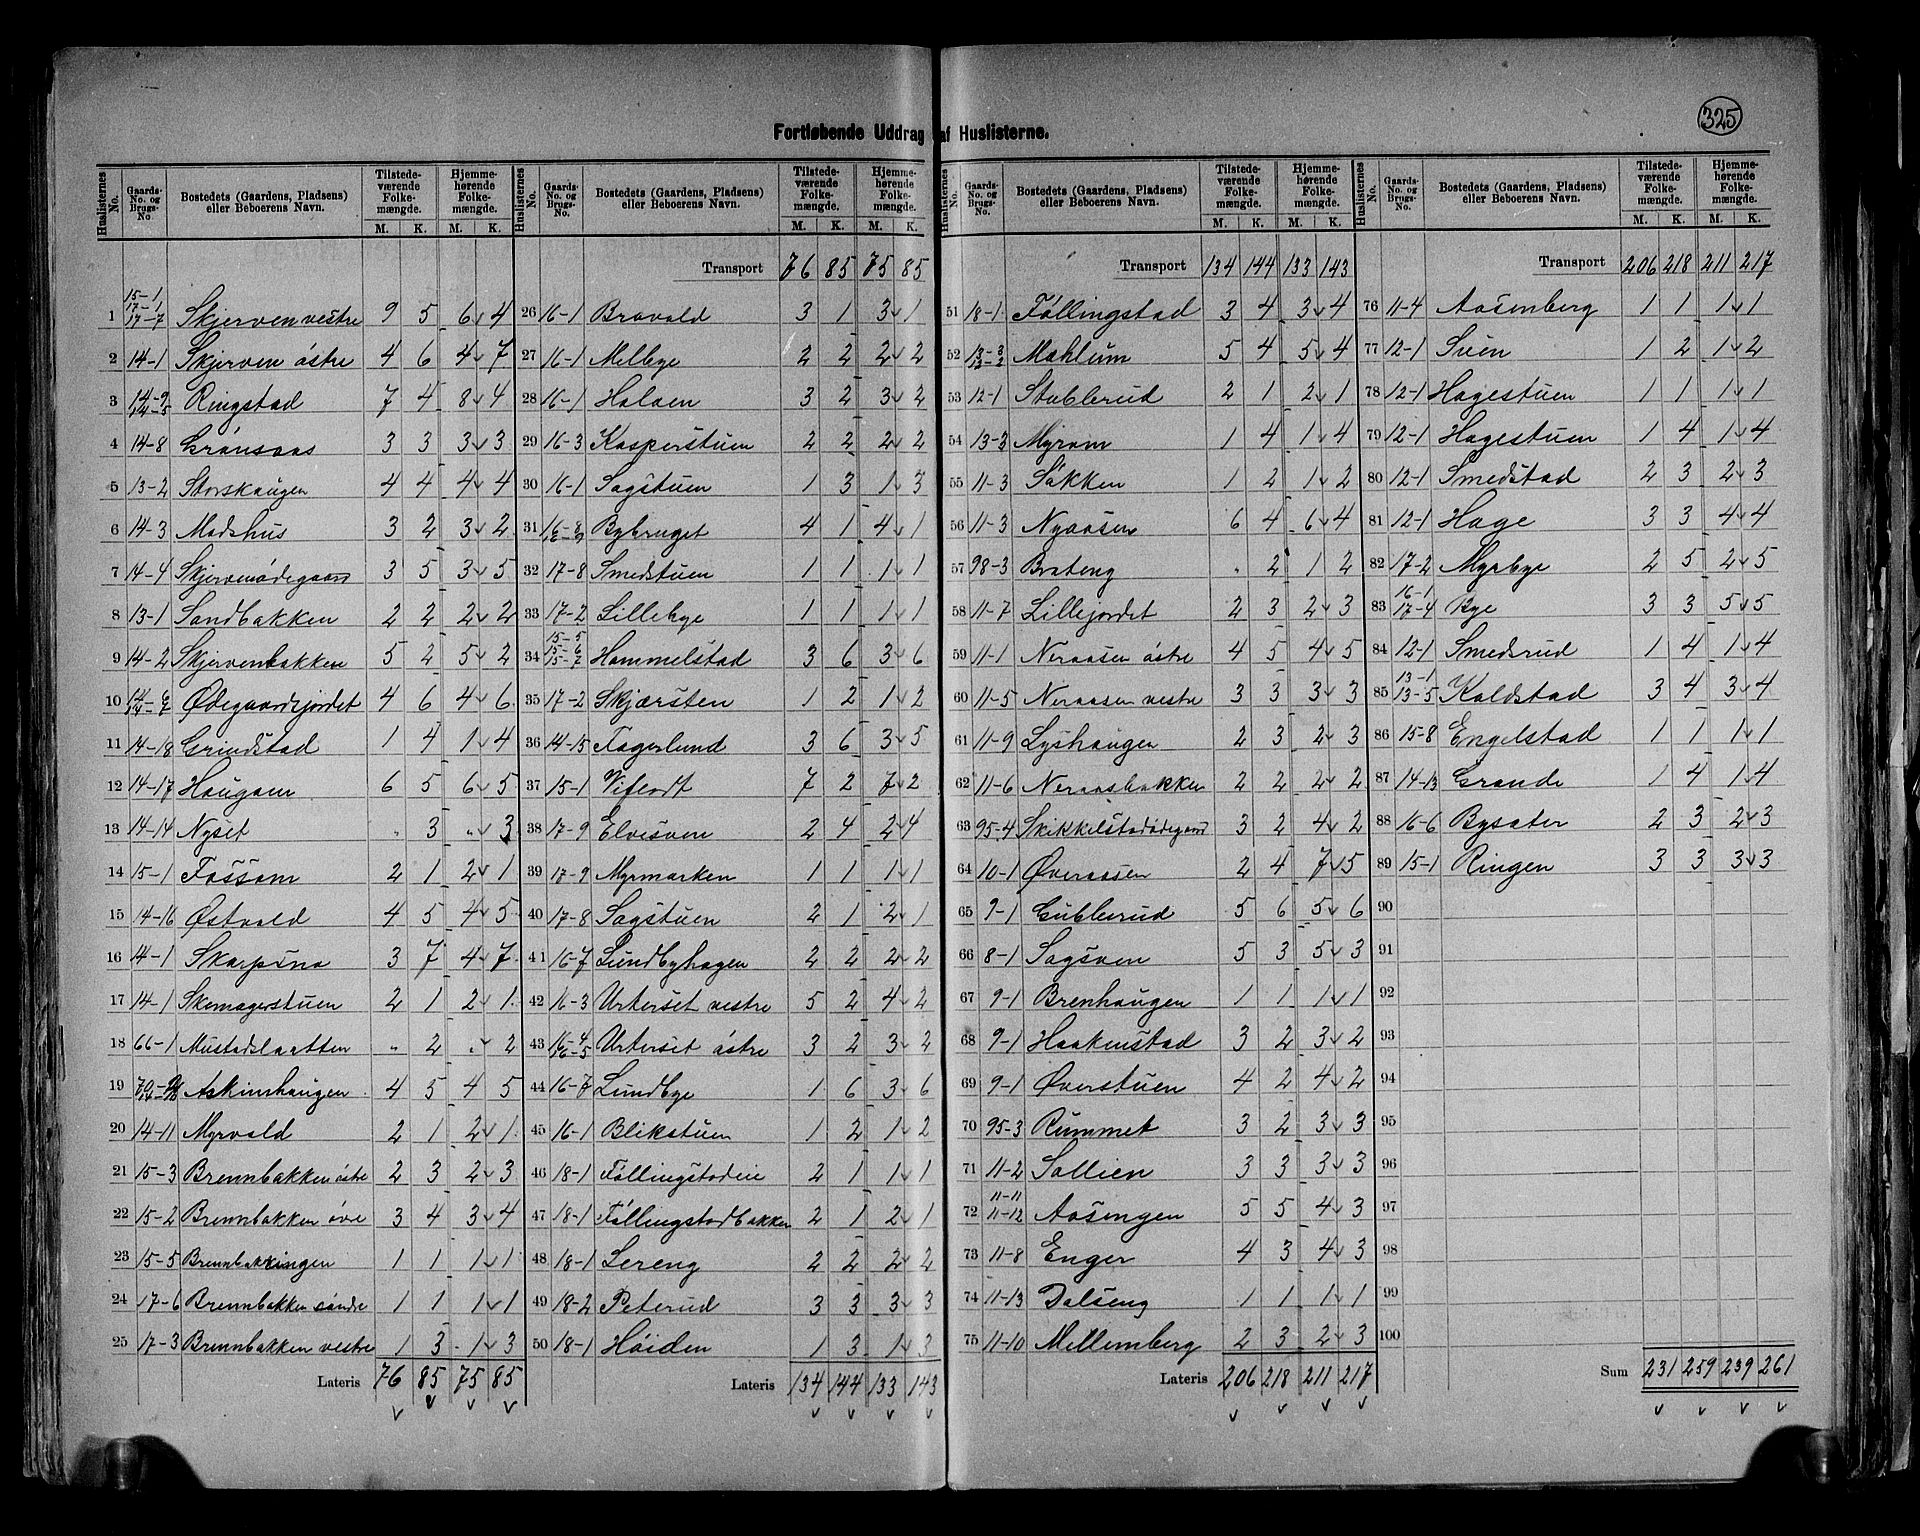 325
Fortløbende Uddrag af Huslisterne.
Huslisternes No. Gaards-No. og Brugs-No. Bostedets (Gaardens, Pladsens) eller Beboerens Navn. Tilstedeværende Folkemængde. M. K. Hjemmehørende Folkemængde. M. K.
1 15-1 17-1 17-7 Skjerven vestre 9 5 6 4
2 14-1 Skjerven østre 4 6 4 7
3 14-9 14-5 Ringstad 7 4 8 4
4 14-8 Grønsaas 3 3 3 3
5 13-2 Storskaugen 4 4 4 4
6 14-3 Madshus 3 2 3 2
7 14-4 Skjervenødegaard 3 5 3 5
8 13-1 Sandbakken 2 2 2 2
9 14-2 Skjervenbakken 5 2 5 2
10 Ødegaardsjordet 4 6 4 6
11 14-18 Grindstad 1 4 1 4
12 14-17 Haugom 6 5 6 5
13 14-14 Nyset " 3 " 3
14 15-1 Fossom 2 1 2 1
15 14-16 Østvold 4 5 4 5
16 14-1 Skarpsno 3 7 4 7
17 14-1 Skomagerstuen 2 1 2 1
18 66-1 Mustadslaatten " 2 " 2
19 Askimhaugen 4 5 4 5
20 14-11 Myrvold 2 1 2 1
21 15-3 Brennbakken østre 2 3 2 3
22 15-2 Brennbakken øvre 3 4 3 4
23 15-5 Brennbakkingen 1 1 1 1
24 17-6 Brennbakken søndre 1 1 1 1
25 17-3 Brennbakken vestre 1 3 1 3
Lateris 76 85 75 85
Huslisternes No. Gaards-No. og Brugs-No. Bostedets (Gaardens, Pladsens) eller Beboerens Navn. Tilstedeværende Folkemængde. M. K. Hjemmehørende Folkemængde. M. K.
Transport 76 85 75 85
26 16-1 Bravold 3 1 3 1
27 16-1 Melbye 2 2 2 2
28 16-1 Holoen 3 2 3 2
29 16-3 Kasperstuen 2 2 2 2
30 16-1 Sagstuen 1 3 1 3
31 16-8 16-9 Bybruget 4 1 4 1
32 17-8 Smedstuen 1 1 1 1
33 17-2 Lillebye 1 1 1 1
34 15-5 15-6 15-7 Hammelstad 3 6 3 6
35 17-2 Skjærsten 1 2 1 2
36 14-15 Fagerlund 3 6 3 5
37 15-1 Vifladt 7 2 7 2
38 17-9 Elvesven 2 4 2 4
39 17-9 Myrmarken 1 1 1 1
40 17-8 Sagstuen 2 1 2 1
41 16-7 Lundbyhagen 2 2 2 2
42 16-3 Urterset vestre 5 2 4 2
43 16-4 16-5 Urterset østre 3 2 3 2
44 16-7 Lundbye 1 6 3 6
45 16-1 Blikstuen 1 2 1 2
46 18-1 Føllingstadeie 2 1 1 1
47 18-1 Føllingstadbakken 2 1 2 1
48 18-1 Lereng 2 2 2 2
49 18-2 Peterud 3 3 3 3
50 18-1 Høiden 1 3 1 3
Lateris 134 144 133 143
Huslisternes No. Gaards-No. og Brugs-No. Bostedets (Gaardens, Pladsens) eller Beboerens Navn. Tilstedeværende Folkemængde. M. K. Hjemmehørende Folkemængde. M. K.
Transport 134 144 133 143
51 18-1 Føllingstad 3 4 3 4
52 13-3 Mæhlum 5 4 5 4
53 12-1 Stublerud 2 1 2 1
54 13-3 Myrom 1 4 1 4
55 11-3 Søkken 1 2 1 2
56 11-3 Nyaasen 6 4 6 4
57 98-3 Brateng " 2 1 2
58 11-7 Lillejordet 2 3 2 3
59 11-1 Neraasen østre 4 5 4 5
60 11-5 Neraasen vestre 3 3 3 3
61 11-9 Lyshaugen 2 3 2 3
62 11-6 Neraasbakken 2 2 2 2
63 95-4 Skikkelstadødegaard 3 2 4 2
64 10-1 Øveraasen 2 4 7 5
65 9-1 Gublerud 5 6 5 6
66 8-1 Sagsven 5 3 5 3
67 9-1 Brenhaugen 1 1 1 1
68 9-1 Haakenstad 3 2 3 2
69 9-1 Øverstuen 4 2 4 2
70 95-3 Rummet 3 2 3 3
71 11-2 Sollien 3 3 3 3
72 11-11 11-12 Aasengen 5 5 4 3
73 11-8 Enger 4 3 4 3
74 11-13 Dalseng 1 1 1 1
75 11-10 Mellemberg 2 3 2 3
Lateris 206 218 211 217
Huslisternes No. Gaards-No. og Brugs-No. Bostedets (Gaardens, Pladsens) eller Beboerens Navn. Tilstedeværende Folkemængde. M. K. Hjemmehørende Folkemængde. M. K.
Transport 206 218 211 217
76 11-4 Aasenberg 1 1 1 1
77 12-1 Sven 1 2 1 2
78 12-1 Hagestuen 1 1 1 1
79 12-1 Hagestuen 1 4 1 4
80 12-1 Smedstad 2 3 2 3
81 12-1 Hage 3 3 4 4
82 17-2 Myrbye 2 5 2 5
83 16-1 17-4 Bye 3 3 5 5
84 12-1 Smedsrud 1 4 1 4
85 13-1 13-5 Koldstad 3 4 3 4
86 15-8 Engelstad 1 1 1 1
87 14-13 Grande 1 4 1 4
88 16-6 Bysæter 2 3 2 3
89 15-1 Ringen 3 3 3 3
90
91
92
93
94
95
96
97
98
99
100
Sum 231 259 239 261